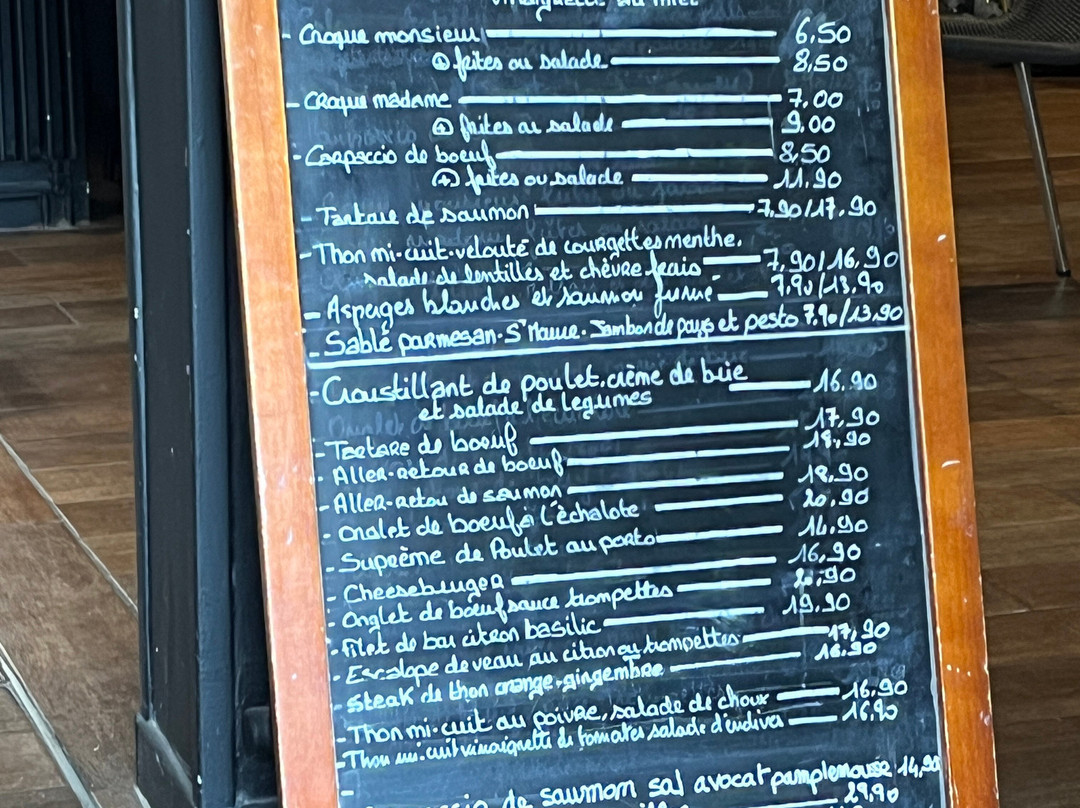 vinaigrette au miel
- Croque monsieur 6,50
⊕ frites ou salade 8,50
- CROque madame 7.00
⊕ frites ou salade 9.00
- Carpaccio de boeuf 8,50
⊕ frites ou salade 11,90
- Tartare de saumon 7,90/17.90
- Thon mi-cuit-velouté de courgettes menthe,
salade de lentilles et chèvre frais 7,90/16,90
- Asperges blanches et saumon fumé 7,90/13,90
- Sablé parmesan. Sᵗᵉ Maure. Jambon de pays et pesto 7,90/13,90
- Croustillant de poulet, crème de brie 16.90
et salade de legumes
- Tartare de boeuf 17,90
- Aller-retour de boeuf 18,90
- Aller-retou de saumon 18,90
- Onglet de boeuf à l'échalote 20,90
- Suprème de Poulet au porto 14,90
- Cheeseburger 16,90
- Onglet de boeuf sauce trompettes 20,90
- Filet de bar citron basilic 19,90
- Escalope de veau au citron ou trompettes 17,90
- Steak de thon orange-gingembre 16.90
- Thon mi-cuit au poivre, salade de choux 16.90
- Thon mi-cuit vinaigrette de tomates salade d'endives 16,90
de saumon sal avocat pamplemousse 14,90
29,90